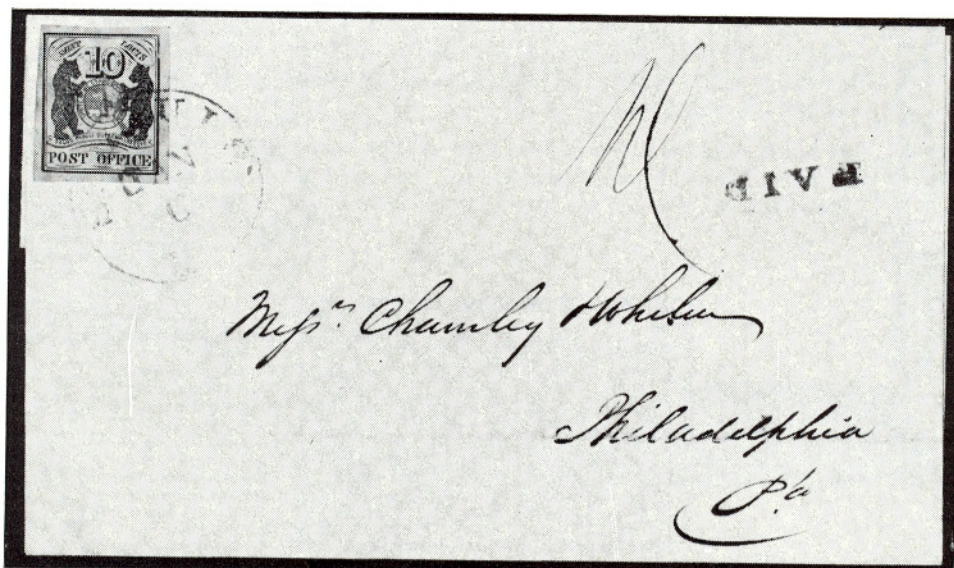 SAINT LOUIS
10
POST OFFICE
PAID
Mess^rs. Charnley & Whelen
Philadelphia
P^a